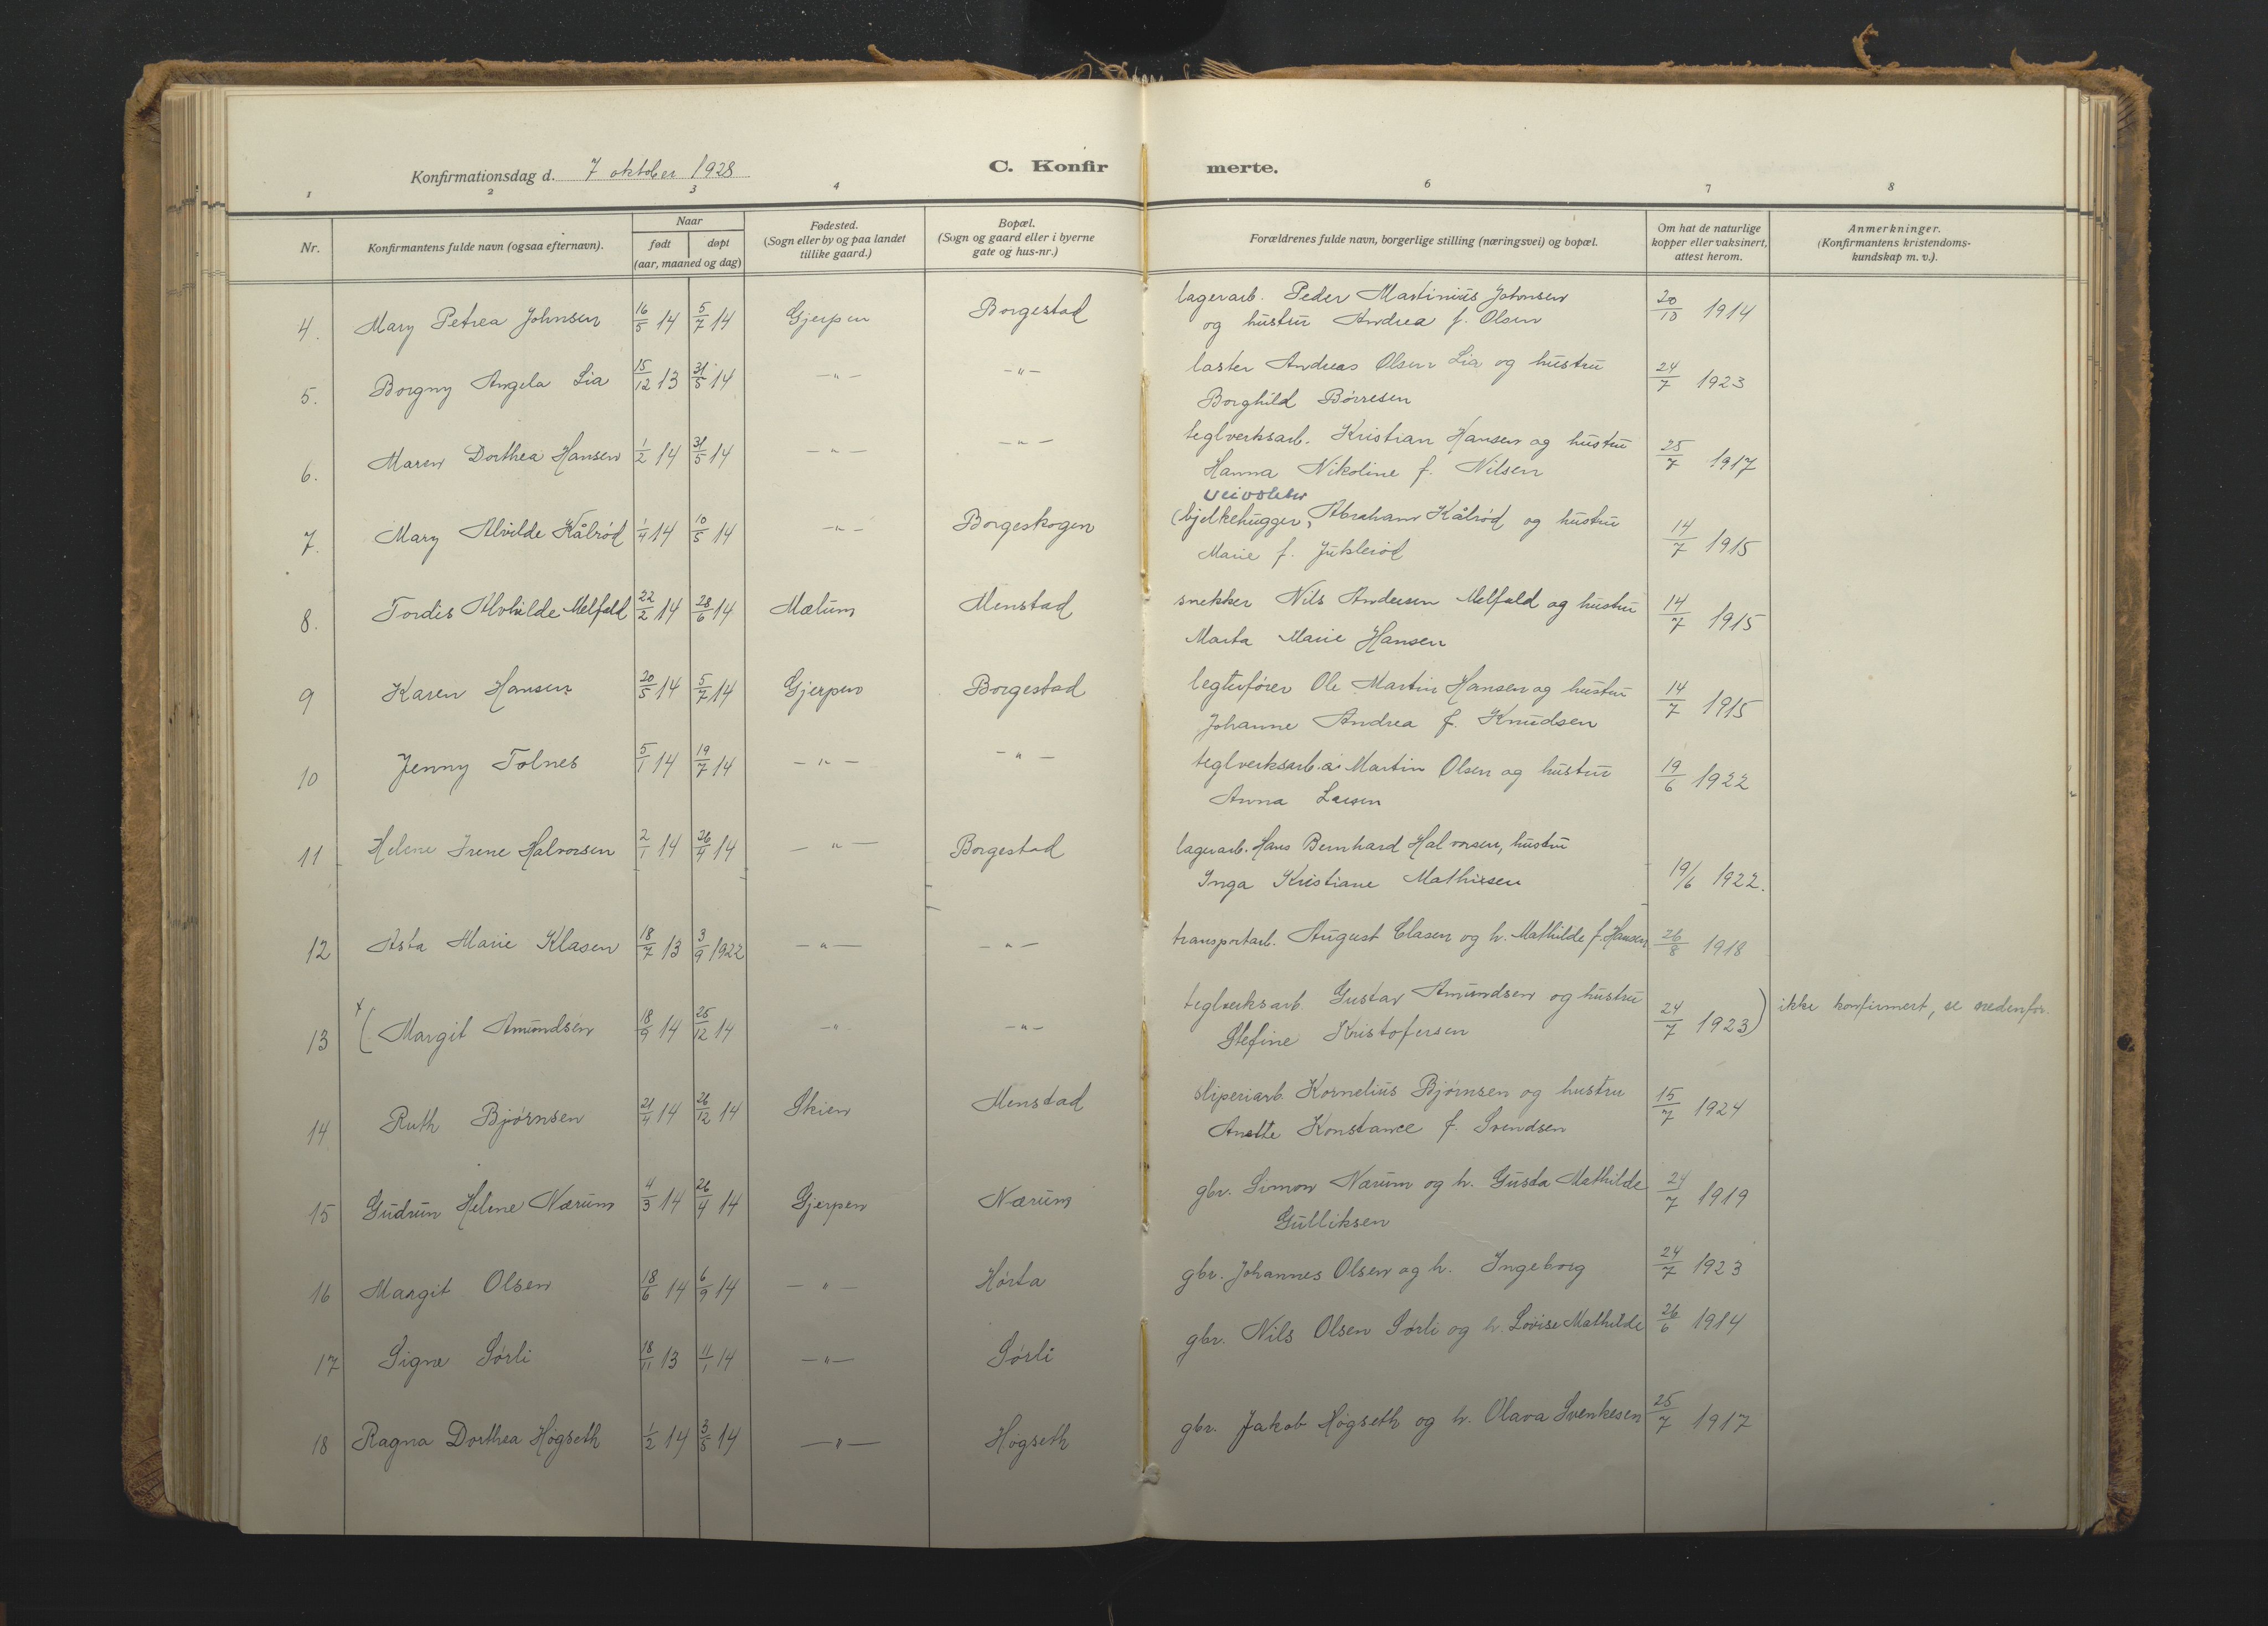 Konfirmationsdag d. 7 oktober 1928
C. Konfir merte.
1 2 3 4 6 7 8
Nr.
Konfirmantens fulde navn (ogsaa efternavn).
Naar
født døpt
(aar, maaned og dag)
Fødested.
(Sogn eller by og paa landet
tillike gaard.)
Bopæl.
(Sogn og gaard eller i byerne
gate og hus-nr.)
Forældrenes fulde navn, borgerlige stilling (næringsvei) og bopæl.
Om hat de naturlige
kopper eller vaksinert,
attest herom.
Anmerkninger.
(Konfirmantens kristendoms-
kundskap m. v.).
4. Mary Petrea Johnsen 16/5 14 5/7 14 Gjerpen Borgestad lagerarb. Peder Martinius Johnsen 20/10 1914
og hustru Andrea f. Olsen
5. Borgny Angela Lia 15/12 13 31/5 14 -"- -"- laster Andreas Olsen Lia og hustru 24/7 1923
Borghild Börresen
6. Maren Dorthea Hansen 1/2 14 31/5 14 -"- -"- teglverksarb. Kristian Hansen og hustru 25/7 1917
Hanna Nikoline f. Nilsen
veivokter
7. Mary Alvilde Kålrød 1/4 14 10/5 14 -"- Borgeskogen (bjelkehugger, Abraham Kålrød og hustru 14/7 1915
Marie f. Juklerød
8. Tordis Alvhilde Melfald 22/2 14 28/6 14 Mælum Menstad snekker Nils Andersen Melfald og hustru 14/7 1915
Marta Marie Hansen
9 Karen Hansen 20/5 14 5/7 14 Gjerpen Borgestad legtufører Ole Martin Hansen og hustru 14/7 1915
Johanne Andrea f. Knudsen
10 Jenny Tolnes 5/1 14 19/7 14 -"- -"- teglverksarb. Martin Olsen og hustru 19/6 1922
Anna Larsen
11 Helene Irene Halvorsen 2/1 14 26/4 14 -"- Borgestad lagerarb. Hans Bernhard Halvorsen, hustru
Inga Kristiane Mathisen 19/6 1922.
12 Asta Marie Klasen 18/7 13 3/9 1922 -"- -"- transportarb. August Clasen og h. Mathilde f. Hansen 26/8 1918
13 x (Margit Amundsen 18/9 14 25/12 14 -" -"- teglverksarb. Gustav Amundsen og hustru 24/7 1923) ikke konfirmert, se nedenfor.
Stefine Kristofersen
14 Ruth Bjørnsen 21/4 14 26/12 14 Skien Menstad sliperiarb. Kornelius Bjørnsen og hustru 15/7 1924
Anette Konstance f. Svendsen
15 Gudrun Helene Nærum 4/3 14 26/4 14 Gjerpen Nærum gbr. Simon Nærum og h. Gusta Mathilde 24/7 1919
Gulliksen
16 Margit Olsen 18/6 14 6/9 14 -"- Hørta gbr. Johannes Olsen og h. Ingeborg 24/7 1923
17 Signe Sørli 18/11 13 11/1 14 -"- Sørli gbr. Nils Olsen Sørli og h. Lovise Mathilde 26/6 1914
18 Ragna Dorthea Høgseth 1/2 14 3/5 14 -"- Høgseth gbr. Jakob Høgseth og h. Olava Svenkesen 25/7 1917